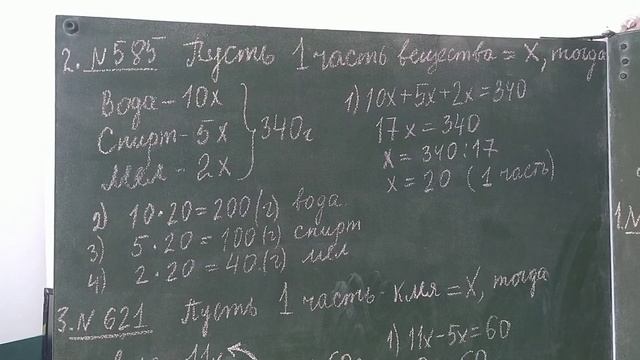 2. N 585 Пусть 1 часть вещества = X, тогда
Вода - 10x
Спирт - 5x
Мел - 2x
340г
1) 10x+5x+2x=340
17x=340
x=340:17
x=20 (1 часть)
2) 10·20=200(г) вода
3) 5·20=100(г) спирт
4) 2·20=40(г) мел
3. N 621 Пусть 1 часть - кмя = X, тогда
1) 11x-5x=60
11x
1. N